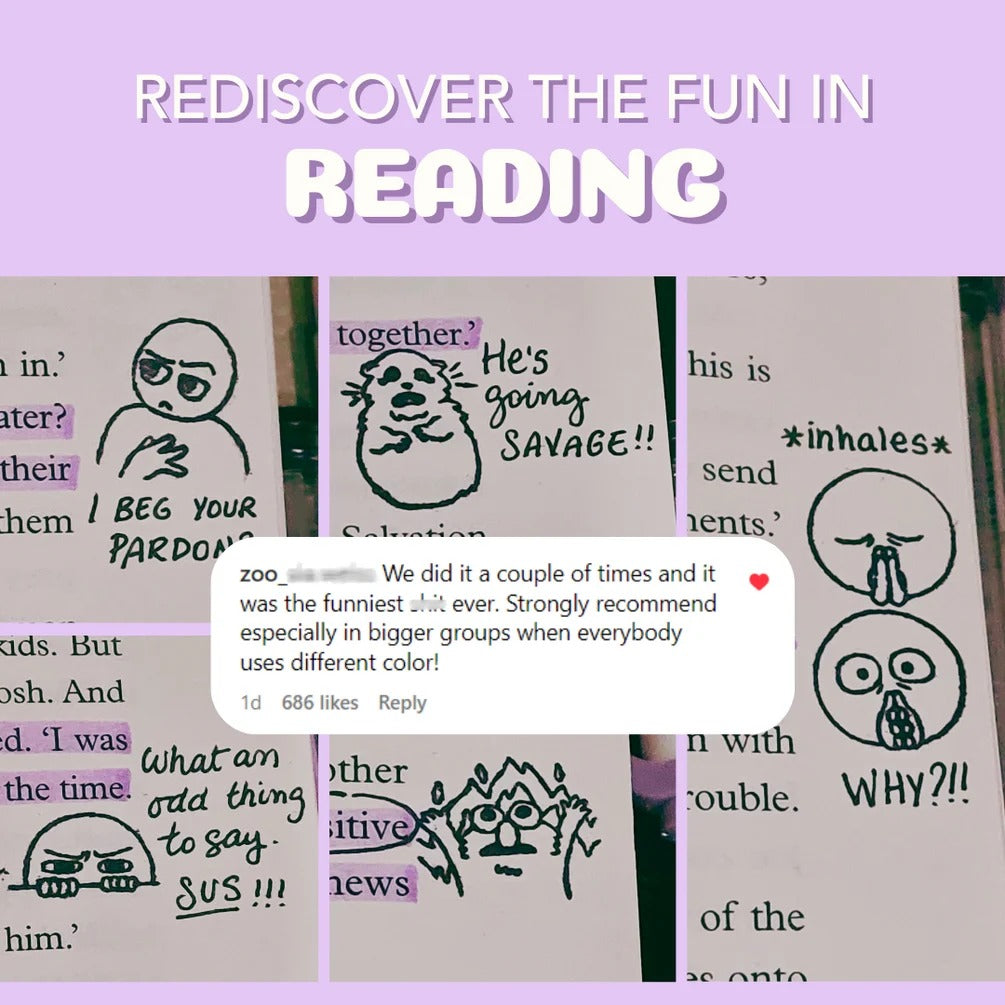 REDISCOVER THE FUN IN
READING
n in.’
ater?
their
them
I BEG YOUR
PARDON?
together.’
He's
going
SAVAGE!!
Salvation
his is
*inhales*
send
nents.’
n with
rouble.
WHY?!!
of the
es onto
zoo_ We did it a couple of times and it
was the funniest ever. Strongly recommend
especially in bigger groups when everybody
uses different color!
1d 686 likes Reply
kids. But
osh. And
ed. ‘I was
the time.
what an
odd thing
to say.
SUS !!!
him.’
other
sitive
news